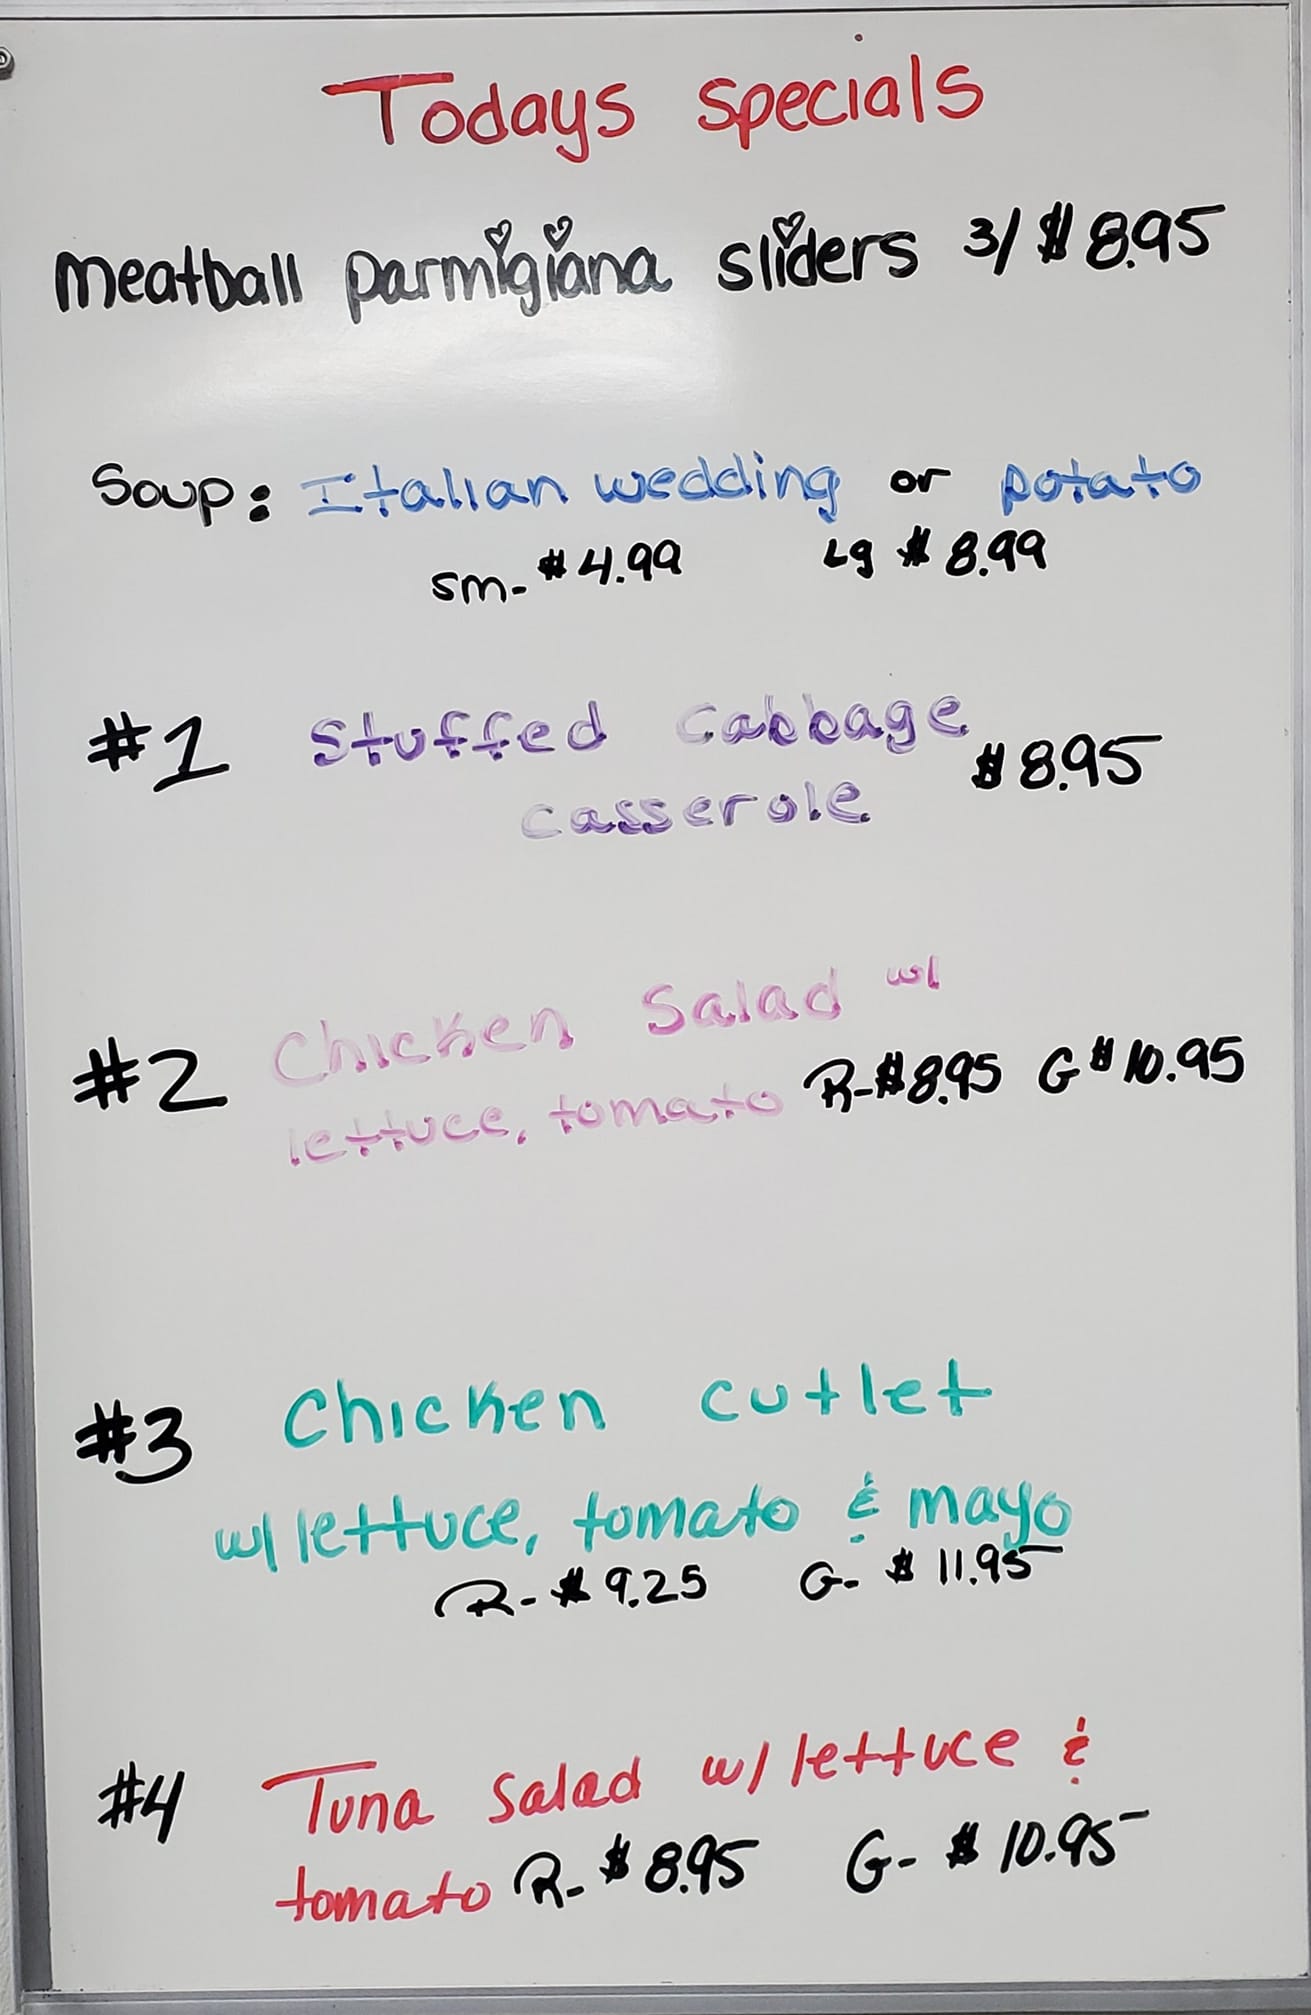 Todays specials
meatball parmigiana sliders 3/$8.95
Soup: Italian wedding or potato
sm- $4.99 Lg $8.99
#1 Stuffed Cabbage
casserole $8.95
#2 Chicken Salad w/
lettuce, tomato R-$8.95 G $10.95
#3 Chicken cutlet
w/ lettuce, tomato & mayo
R- $9.25 G- $11.95
#4 Tuna salad w/ lettuce &
tomato R- $8.95 G- $10.95